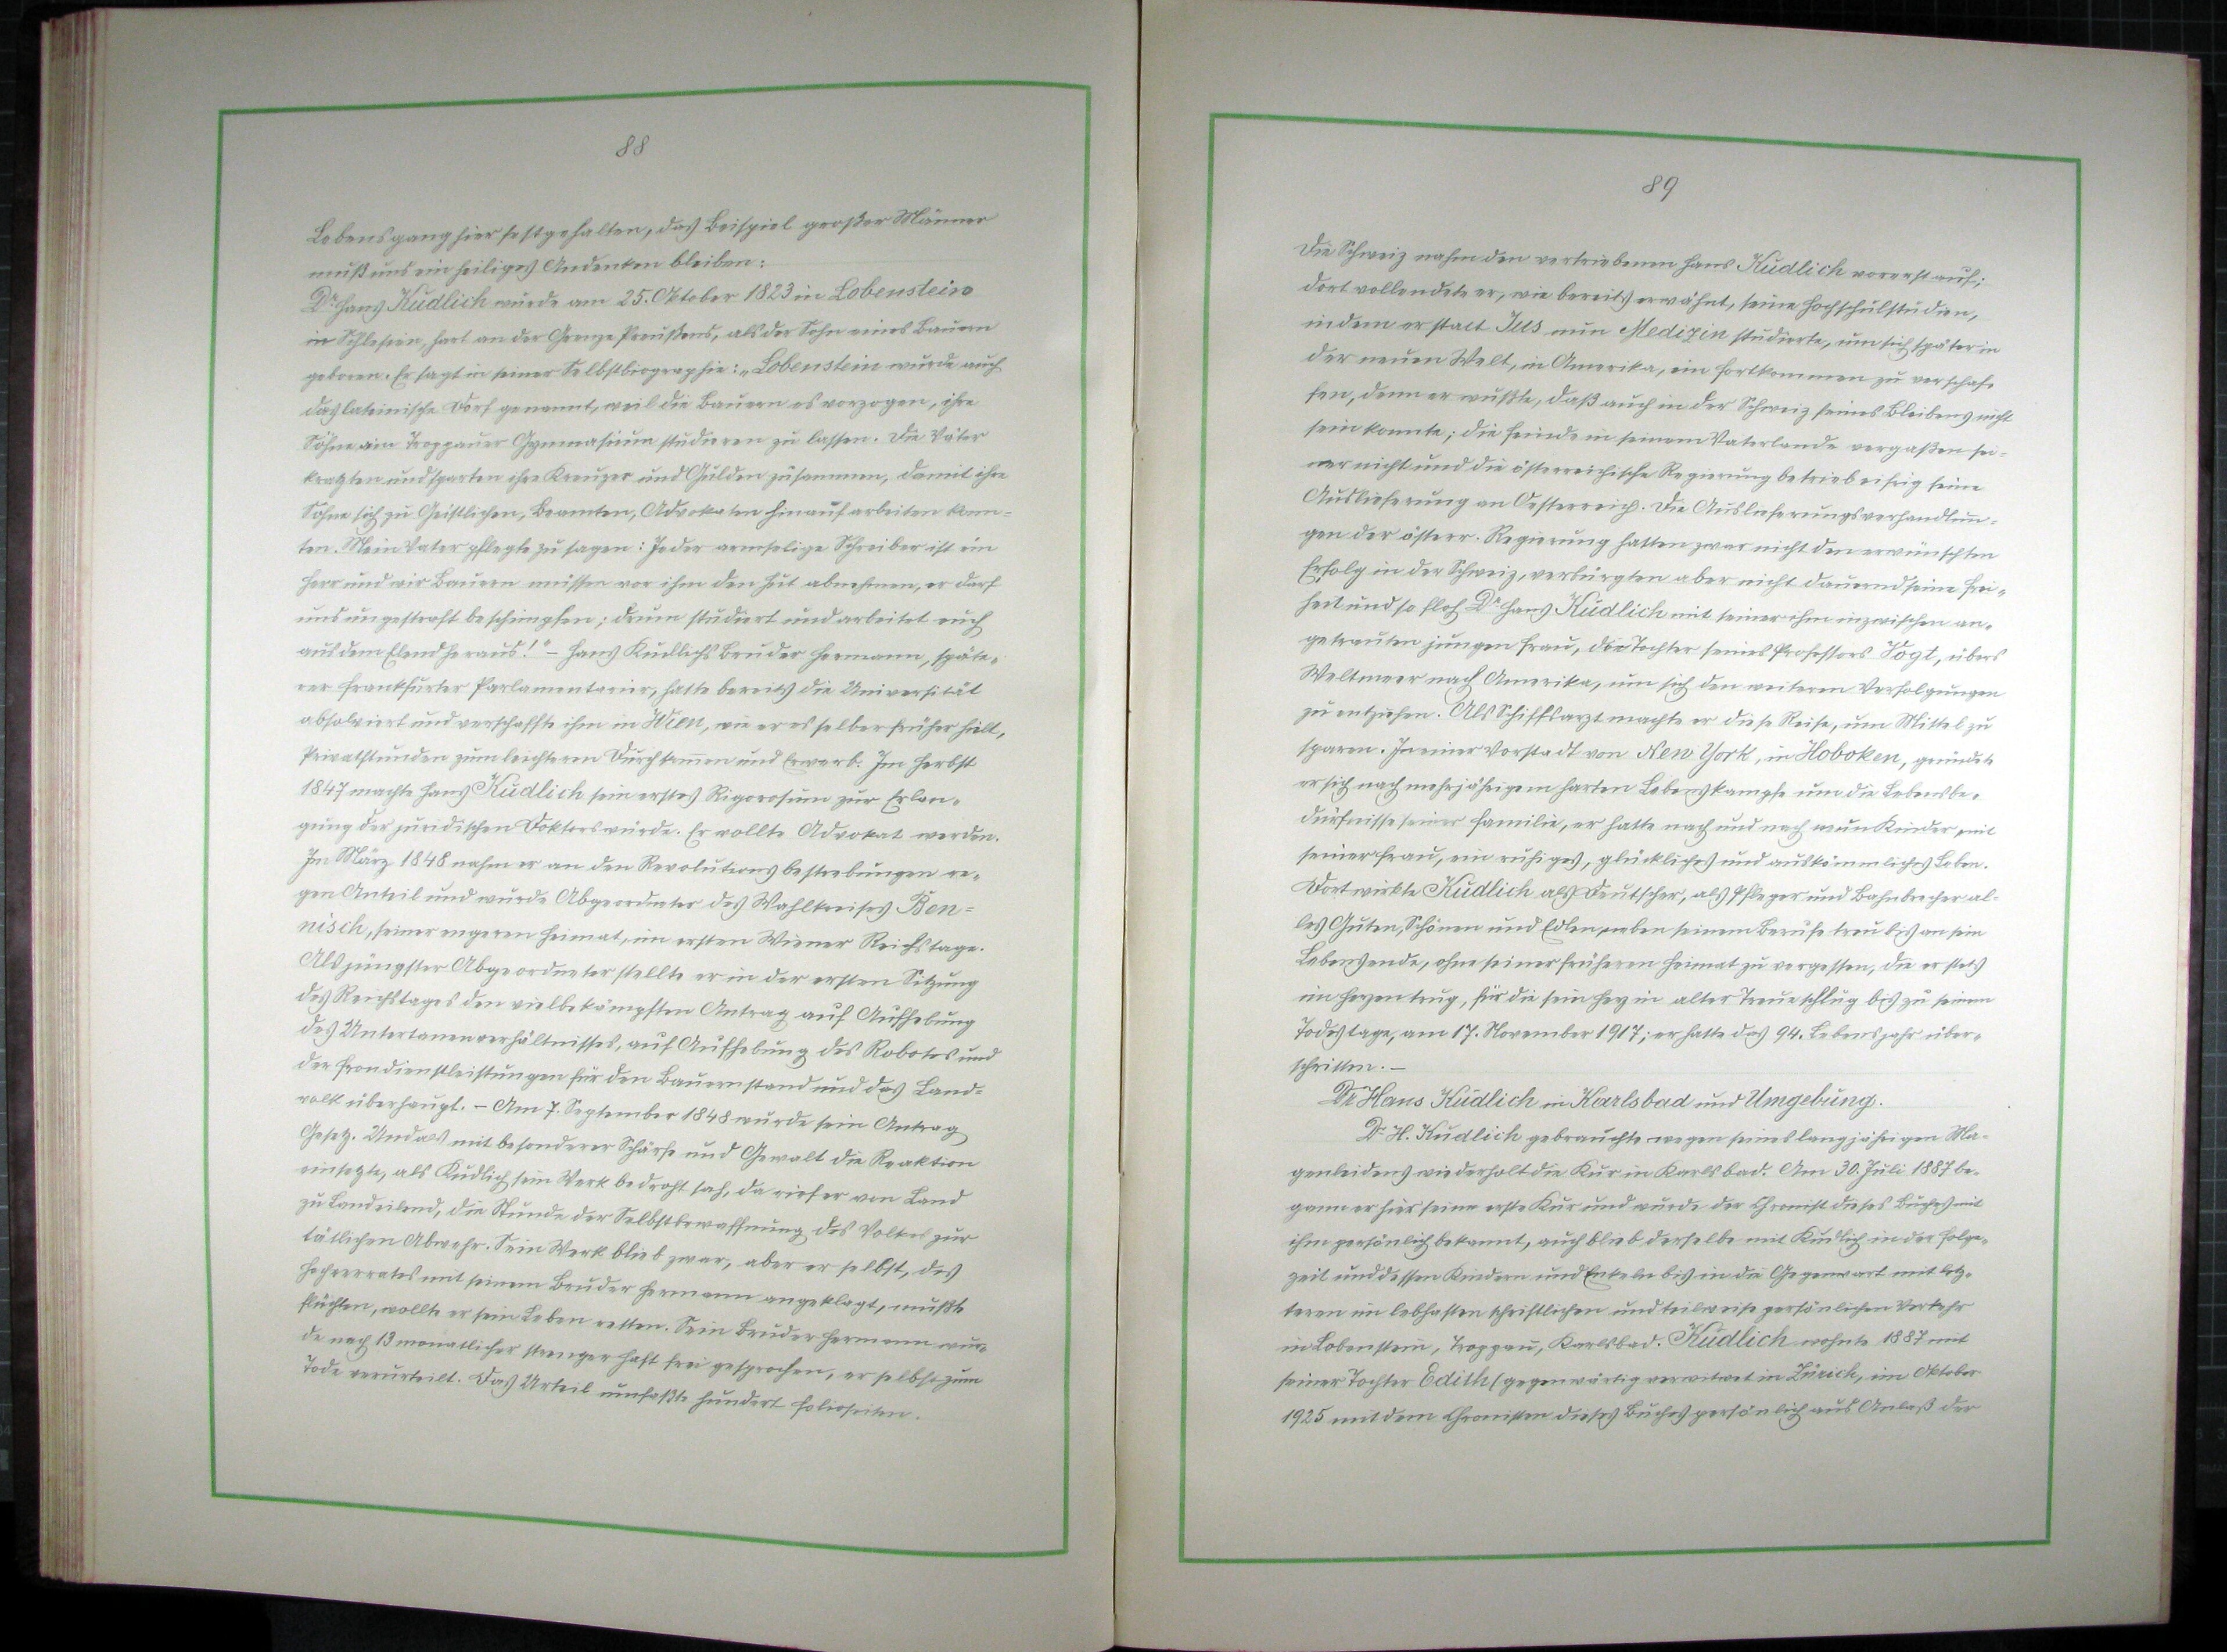 88
Lebensgang hier festgehalten, das Beispiel großer Männer
muß uns ein heiliges Andenken bleiben:
Dr. Hans Kudlich wurde am 25. Oktober 1823 in Lobenstein
in Schlesien, hart an der Grenze Preußens, als der Sohn eines Bauern
geboren. Er sagt in seiner Selbstbiographie: „Lobenstein wurde auch
das lateinische Dorf genannt, weil die Bauern es vorzogen, ihre
Söhne am Troppauer Gymnasium studieren zu lassen. Die Väter
kratzten und sparten ihre Kreuzer und Gulden zusammen, damit ihre
Söhne sich zu Geistlichen, Beamten, Advokaten hinauf arbeiten konn-
ten. Mein Vater pflegte zu sagen: Jeder armselige Schreiber ist ein
Herr und wir Bauern müssen vor ihm den Hut abnehmen, er darf
uns ungestraft beschimpfen; drum studiert und arbeitet euch
aus dem Elend heraus!" – Hans Kudlichs Bruder Hermann, späte-
rer Frankfurter Parlamentarier, hatte bereits die Universität
absolviert und verschaffte ihm in Wien, wie er es selber früher hielt,
Privatstunden zum leichteren Durchkommen und Erwerb. Im Herbst
1847 machte Hans Kudlich sein erstes Rigorosum zur Erlan-
gung der juridischen Doktorswürde. Er wollte Advokat werden.
Im März 1848 nahm er an den Revolutionsbestrebungen re-
gen Anteil und wurde Abgeordneter des Wahlkreises Ben-
nisch, seiner engeren Heimat, im ersten Wiener Reichstage.
Als jüngster Abgeordneter stellte er in der ersten Sitzung
des Reichstages den vielbekämpften Antrag auf Aufhebung
des Untertanenverhältnisses, auf Aufhebung des Robotes und
der Frondienstleistungen für den Bauernstand und das Land-
volk überhaupt. – Am 7. September 1848 wurde sein Antrag
Gesetz. Und als mit besonderer Schärfe und Gewalt die Reaktion
einsetzte, als Kudlich sein Werk bedroht sah, da rief er von Land
zu Land eilend, die Stunde der Selbstbewaffnung des Volkes zur
tätlichen Abwehr. Sein Werk blieb zwar, aber er selbst, des
Hochverrates mit seinem Bruder Hermann angeklagt, mußte
flüchten, wollte er sein Leben retten. Sein Bruder Hermann wur-
de nach 13 monatlicher strenger Haft frei gesprochen, er selbst zum
Tode verurteilt. Das Urteil umfaßte hundert Folioseiten.
89
Die Schweiz nahm den vertriebenen Hans Kudlich vorerst auf;
dort vollendete er, wie bereits erwähnt, seine Hochschulstudien,
indem er statt Jus nun Medizin studierte, um sich später in
der neuen Welt, in Amerika, ein Fortkommen zu verschaf-
fen, denn er wußte, daß auch in der Schweiz seines Bleibens nicht
sein konnte; die Feinde in seinem Vaterlande vergaßen sei-
ner nicht und die österreichische Regierung betrieb eifrig seine
Auslieferung an Oesterreich. Die Auslieferungsverhandlun-
gen der österr. Regierung hatten zwar nicht den erwünschten
Erfolg in der Schweiz, verbürgten aber nicht dauernd seine Frei-
heit und so floh Dr. Hans Kudlich mit seiner ihm inzwischen an-
getrauten jungen Frau, die Tochter seines Professors Vogt, übers
Weltmeer nach Amerika, um sich den weiteren Verfolgungen
zu entziehen. Als Schiffsarzt machte er diese Reise, um Mittel zu
sparen. In einer Vorstadt von New York, in Hoboken, gründete
er sich nach mehrjährigem harten Lebenskampfe um die Lebensbe-
dürfnisse seiner Familie, er hatte nach und nach neun Kinder mit
seiner Frau, ein ruhiges, glückliches und auskömmliches Leben.
Dort wirkte Kudlich als Deutscher, als Pfleger und Bahnbrecher al-
les Guten, Schönen und Edlen neben seinem Berufe treu bis an sein
Lebensende, ohne seiner früheren Heimat zu vergessen, die er stets
im Herzen trug, für die sein Herz in alter Treue schlug bis zu seinem
Todestage, am 17. November 1917; er hatte das 94. Lebensjahr über-
schritten. –
Dr. Hans Kudlich in Karlsbad und Umgebung.
Dr. H. Kudlich gebrauchte wegen seines langjährigen Ma-
genleidens wiederholt die Kur in Karlsbad. Am 30. Juli 1887 be-
gann er hier seine erste Kur und wurde der Chronist dieses Buches mit
ihm persönlich bekannt, auch blieb derselbe mit Kudlich in der Folge-
zeit und dessen Kindern und Enkeln bis in die Gegenwart mit letz-
teren im lebhaften schriftlichen und teilweise persönlichen Verkehr
in Lobenstein, Troppau, Karlsbad. Kudlich wohnte 1887 mit
seiner Tochter Edith (gegenwärtig verwitwet in Zürich, im Oktober
1925 mit dem Chronisten dieses Buches persönlich aus Anlaß der